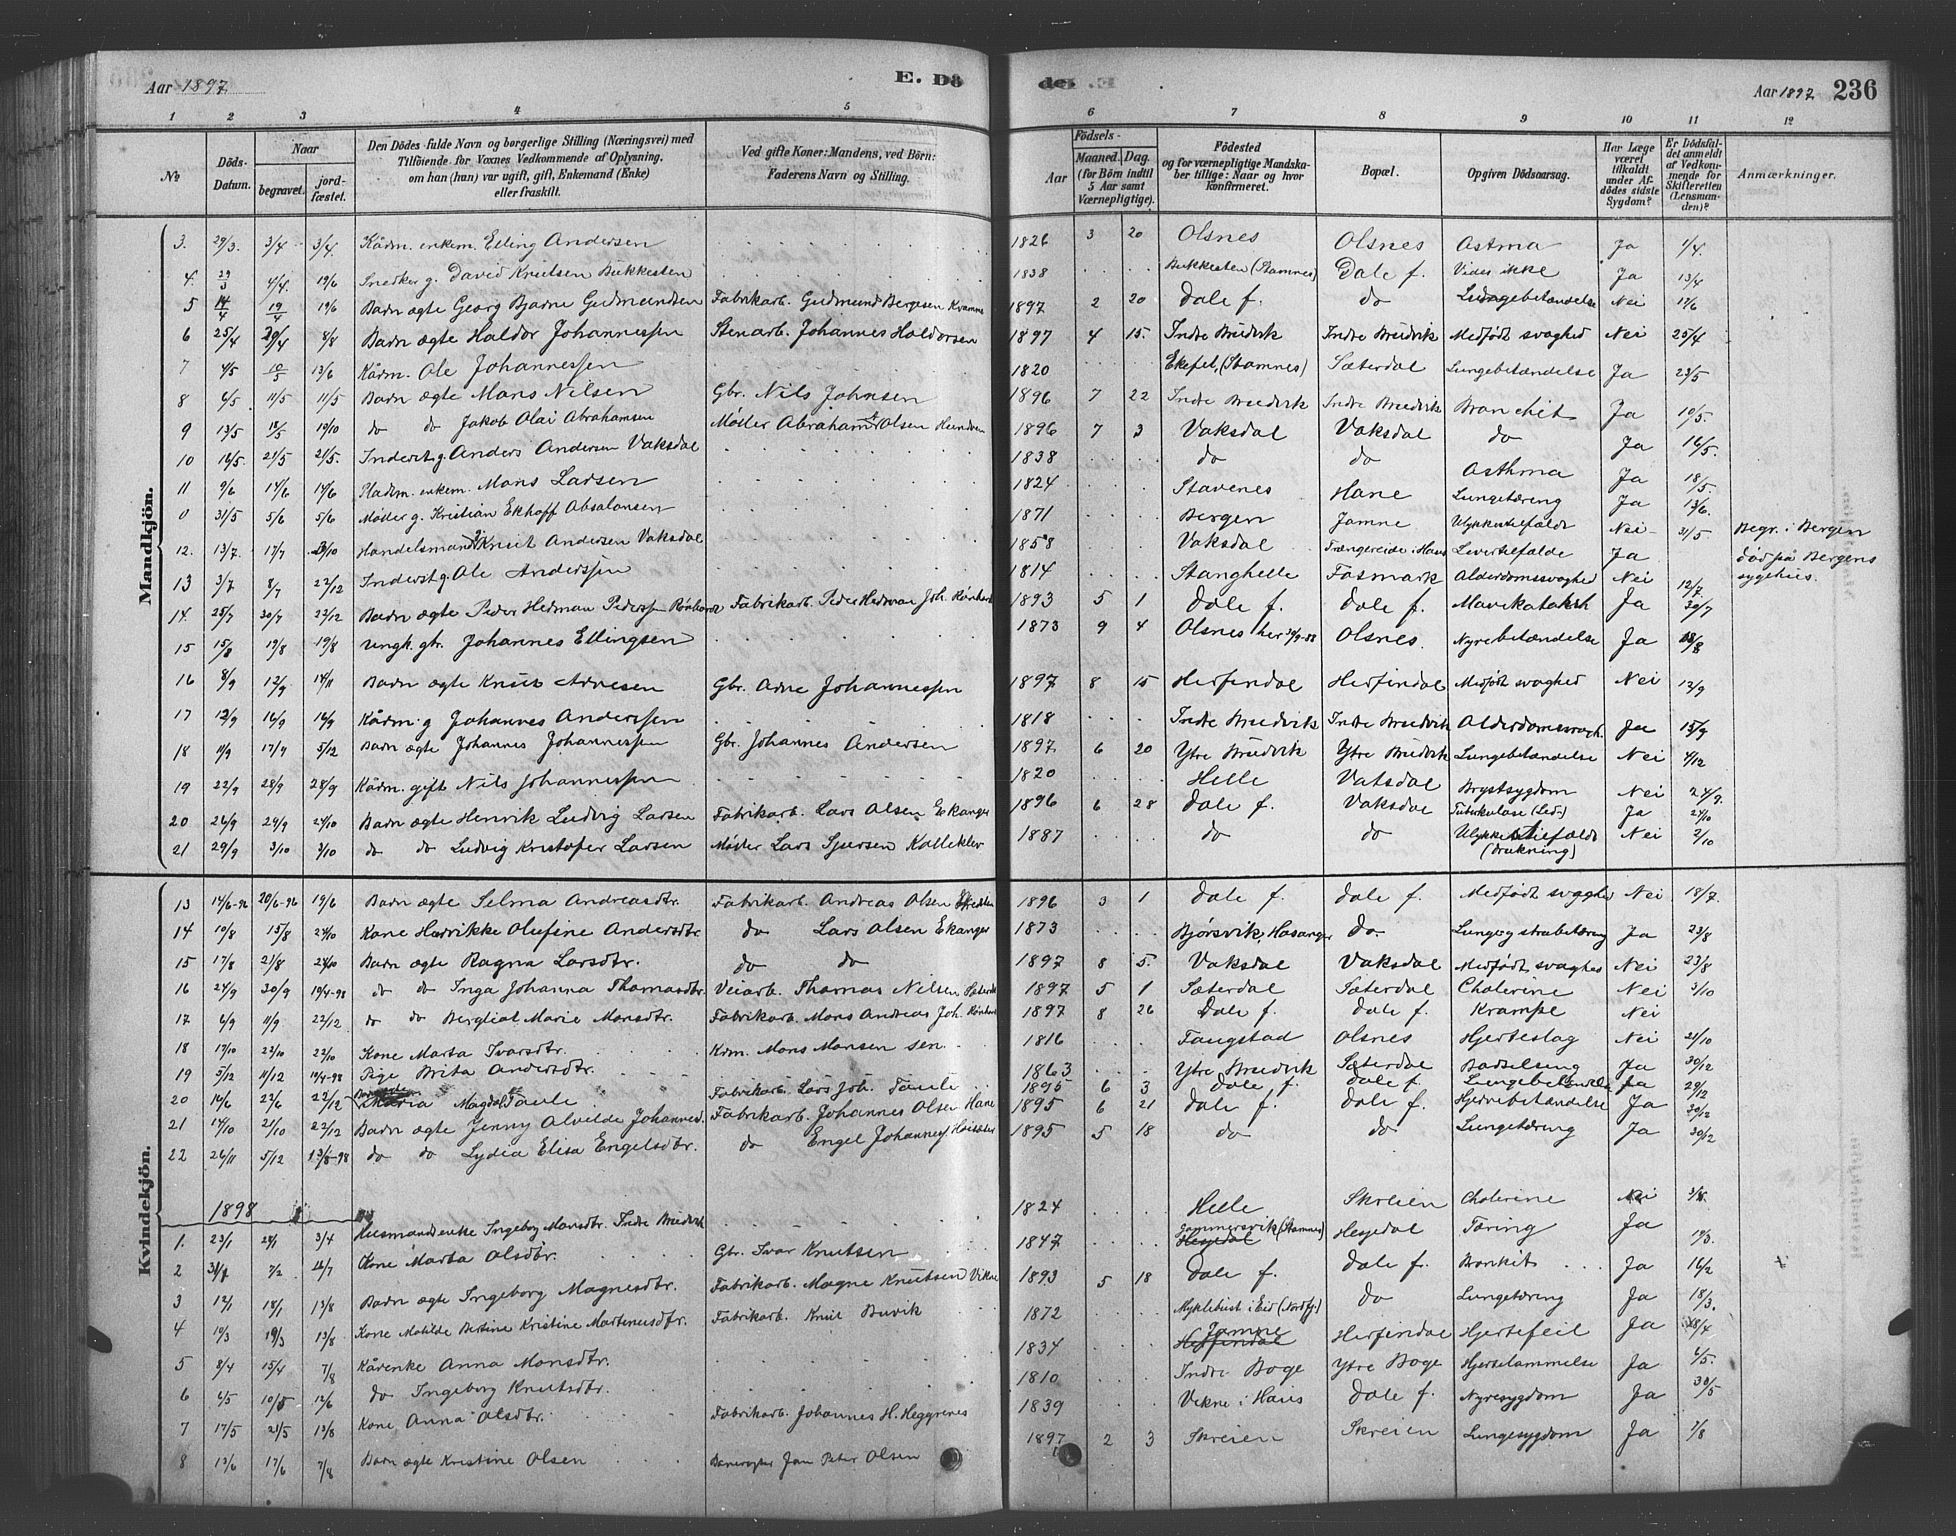 Aar 1897. E. Dö
1 2 3 4 5
No Döds-Datum. Naar begravet. jordfæstet. Den Dödes fulde Navn og borgerlige Stilling (Næringsvei) med Tilföiende for Voxnes Vedkommende af Oplysning, om han (hun) var ugift, gift, Enkemand (Enke) eller fraskilt. Ved gifte Koner: Mandens, ved Börn: Faderens Navn og Stilling.
Mandkjön.
3. 29/3. 3/4 3/4. Kårm. enkem. Elling Andersen
4. 29/3 4/4. 19/6 Snedker g. David Knutsen Bukkesten
5 14/4 19/4 19/6 Barn ægte Georg Bjarne Gudmundsen Fabrikarb. Gudmund Bergesen Kvamme
6 25/4 29/4 8/8 Barn ægte Haldor Johannessen Stenarb. Johannes Haldorsen
7 4/5 10/5 13/6 Kårm. Ole Johannessen
8 6/5 11/5 11/5 Barn ægte Mons Nilsen Gbr. Nils Johnsen
9 13/5 18/5 10/10 do do Jakob Olai Abrahamsen Møller Abraham Olsen
10 16/5. 21/5 21/5. Inderst g. Anders Andersen Vaksdal
11 9/6 14/6 14/6 Pladsm. enkem. Mons Larsen
0 31/5 5/6 5/6 Møller g. Kristian Ekhoff Absalonsen
12. 13/7. 17/7 /10 Handelsmand Knut Andersen Vaksdal
13 3/7 8/7 22/12 Inderst g. Ole Anderssen
14. 25/7 30/7 22/12 Barn ægte Peder Hedman Pederssen Fabrikarb. Peder Hedman Joh.
15 15/8 19/8 19/8 Ungk. gbr. Johannes Ellingsen
16 8/9 12/9 14/11 Barn ægte Knut Arnesen Gbr. Arne Johannessen
17 12/9 16/9 16/9 Kårm. g Johannes Anderssen
18 11/9 17/9 5/12 Barn ægte Johannes Johannessen Gbr. Johannes Andersen
19 22/9 28/9 28/9 Kårm. gift Nils Johannessen
20 26/9 29/9 24/10 Barn ægte Henrik Ludvig Larsen Fabrikarb. Lars Olsen Ekanger
21 29/9 3/10 3/10 do do Ludvig Kristofer Larsen Møller Lars Sjursen Kalleklev
Kvindekjön.
13 14/6-96 20/6-96 19/6 Barn ægte Selma Andreasdtr. Fabrikarb. Andreas Olsen
14 10/8 15/8 24/10 Kone Henrikke Olufine Andersdtr. do Lars Olsen Ekanger
15 17/8 21/8 24/10 Barn ægte Ragna Larsdtr. do do
16 24/9 30/9 19/4-98 do do Inga Johanna Thomasdtr. Veiarb. Thomas Nilsen
17 6/9 11/9 22/12 do do Bergliot Marie Monsdtr. Fabrikarb. Mons Andreas Joh.
18 17/10 22/10 22/10 Kone Marta Ivarsdtr. Krm. Mons Monsen sen.
19 5/12 11/12 19/4-98 Pige Brita Andersdtr.
20 16/6 22/6 22/12 Maria Magdal Taule Fabrikarb. Lars Joh. Taule
21 14/10 21/10 22/12 Barn ægte Jenny Alvilde Johannes. Fabrikarb. Johannes Olsen Hane
22 26/11 5/12 13/8-98 do do Lydia Elisa Engelsdtr. do Engel Johannes
1898
1. 23/1 28/1 3/4 Husmandsenke Ingeborg Monsdtr. Indre Bruvik
2 31/1 7/2 /7 Kone Marta Olsdtr. Gbr. Ivar Knutsen
3 12/1 18/1 13/8 Barn ægte Ingeborg Magnesdtr. Fabrikarb. Magne Knutsen Vikne
4 10/3 19/3 13/8 Kone Matilde Bertine Kristine Martinusdtr. Fabrikarb. Knut Buvik
5 8/4 15/4 7/8 Kårenke Anna Monsdtr.
6 4/5 10/5 12/6 do Ingeborg Knutsdtr.
7 17/5 21/5 13/8 Kone Anna Olsdtr. Fabrikarb. Johannes H. Heggrenes
8 13/6 17/6 7/8 Barn ægte Kristine Olsen Banevogter Jan Peter Olsen
de. Aar 1897 236
6 7 8 9 10 11 12
Födsels-
Aar Maaned. Dag. (for Börn indtil 5 Aar samt Værnepligtige). Födested og for værnepligtige Mandskaber tillige: Naar og hvor konfirmeret. Bopæl. Opgiven Dödsaarsag. Har Læge været tilkaldt under Afdödes sidste Sygdom? Er Dödsfaldet anmeldt af Vedkommende for Skifteretten (Lensmanden)? Anmærkninger.
1826 3 20 Olsnes Olsnes Astma Ja 1/4.
1838 Bukkesten (Stamnes) Dale f. Vides ikke Ja 13/4
1897 2 20 Dale f. do Lungebetændelse Nei 17/6
1897 4 15. Indre Bruvik Indre Bruvik Medfødt svaghed Nei 25/4
1820 (Stamnes) Sæterdal Lungebetændelse Ja 23/5
1896 7 22 Indre Bruvik Indre Bruvik Bronchit Ja 10/5.
1896 7 3 Vaksdal Vaksdal do Ja 16/5.
1838 do do Asthma Ja 18/5.
1824 Stavenes Hane Lungetæring Ja 13/6.
1871 Bergen Jamne Ulykkestilfælde Nei 31/5 Begr. i Bergen
1858 Vaksdal Trængereide i Haus Levertilfælde Ja død på Bergens sygehus.
1814 Stanghelle Fosmark Alderdomssvaghed Nei 12/7.
1893 5 1 Dale f. Dale f. Mavekatarrh Ja 30/7
1873 9 4 Olsnes her 30/9-88 Olsnes. Nyrebetændelse Ja 18/8
1897 8 15 Herfindal Herfindal Medfødt svaghed Nei 12/9
1818 Indre Bruvik Indre Bruvik Alderdomssvagh. Ja 15/9
1897 6 20 Ytre Bruvik Ytre Bruvik Lungebetændelse Nei 4/12
1820 Helle Vaksdal Brystsygdom Nei 24/9.
1896 6 28 Dale f. Vaksdal Tuberkulose (Led-) Ja 24/10
1887 do do Ulykkestilfælde (drukning) Nei 2/10
1896 3 1 Dale f. Dale f. Medfødt svaghed Nei 18/7.
1873 Bjørsvik, Hosanger do. Lunge og strubetæring Ja 23/8
1897 8 5. Vaksdal Vaksdal Medfødt svaghed Nei 23/8
1897 5 1 Sæterdal Sæterdal Cholerine Nei 3/10
1897 8 26 Dale f. Dale f. Krampe Nei
1816 Fangstad Olsnes Hjerteslag Nei 21/10
1863 Ytre Bruvik Sæterdal Barselseng Ja 30/12
1895 6 3 Dale f. Dale f. Lungebetændelse Ja 29/12
1895 6 21 Dale f. Dale f. Hjernebetændelse Ja 30/12
1895 5 18 do do Lungetæring Ja 30/12
1824 Helle Skreien Cholerine Nei 3/8.
1847 Gammersvik (Stamnes) Hesjedal Tæring Ja 1/3.
1893 5 18 Dale f. Dale f. Bronkit Ja 16/2
1872 Myklebust i Eid (Nordfj.) do Lungetæring Ja 18/3.
1834 Jamne Herfindal Herfindal Hjertefeil Ja 18/4
1810 Indre Boge Ytre Boge Hjertelammelse Ja 6/5.
1839 Vikne i Haus Dale f. Nyresygdom Ja 30/5
1897 2 3 Skreien Skreien Lungesygdom Ja 7/8